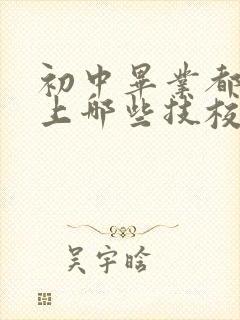 初中畢業都
上哪些技校
吴宇晗